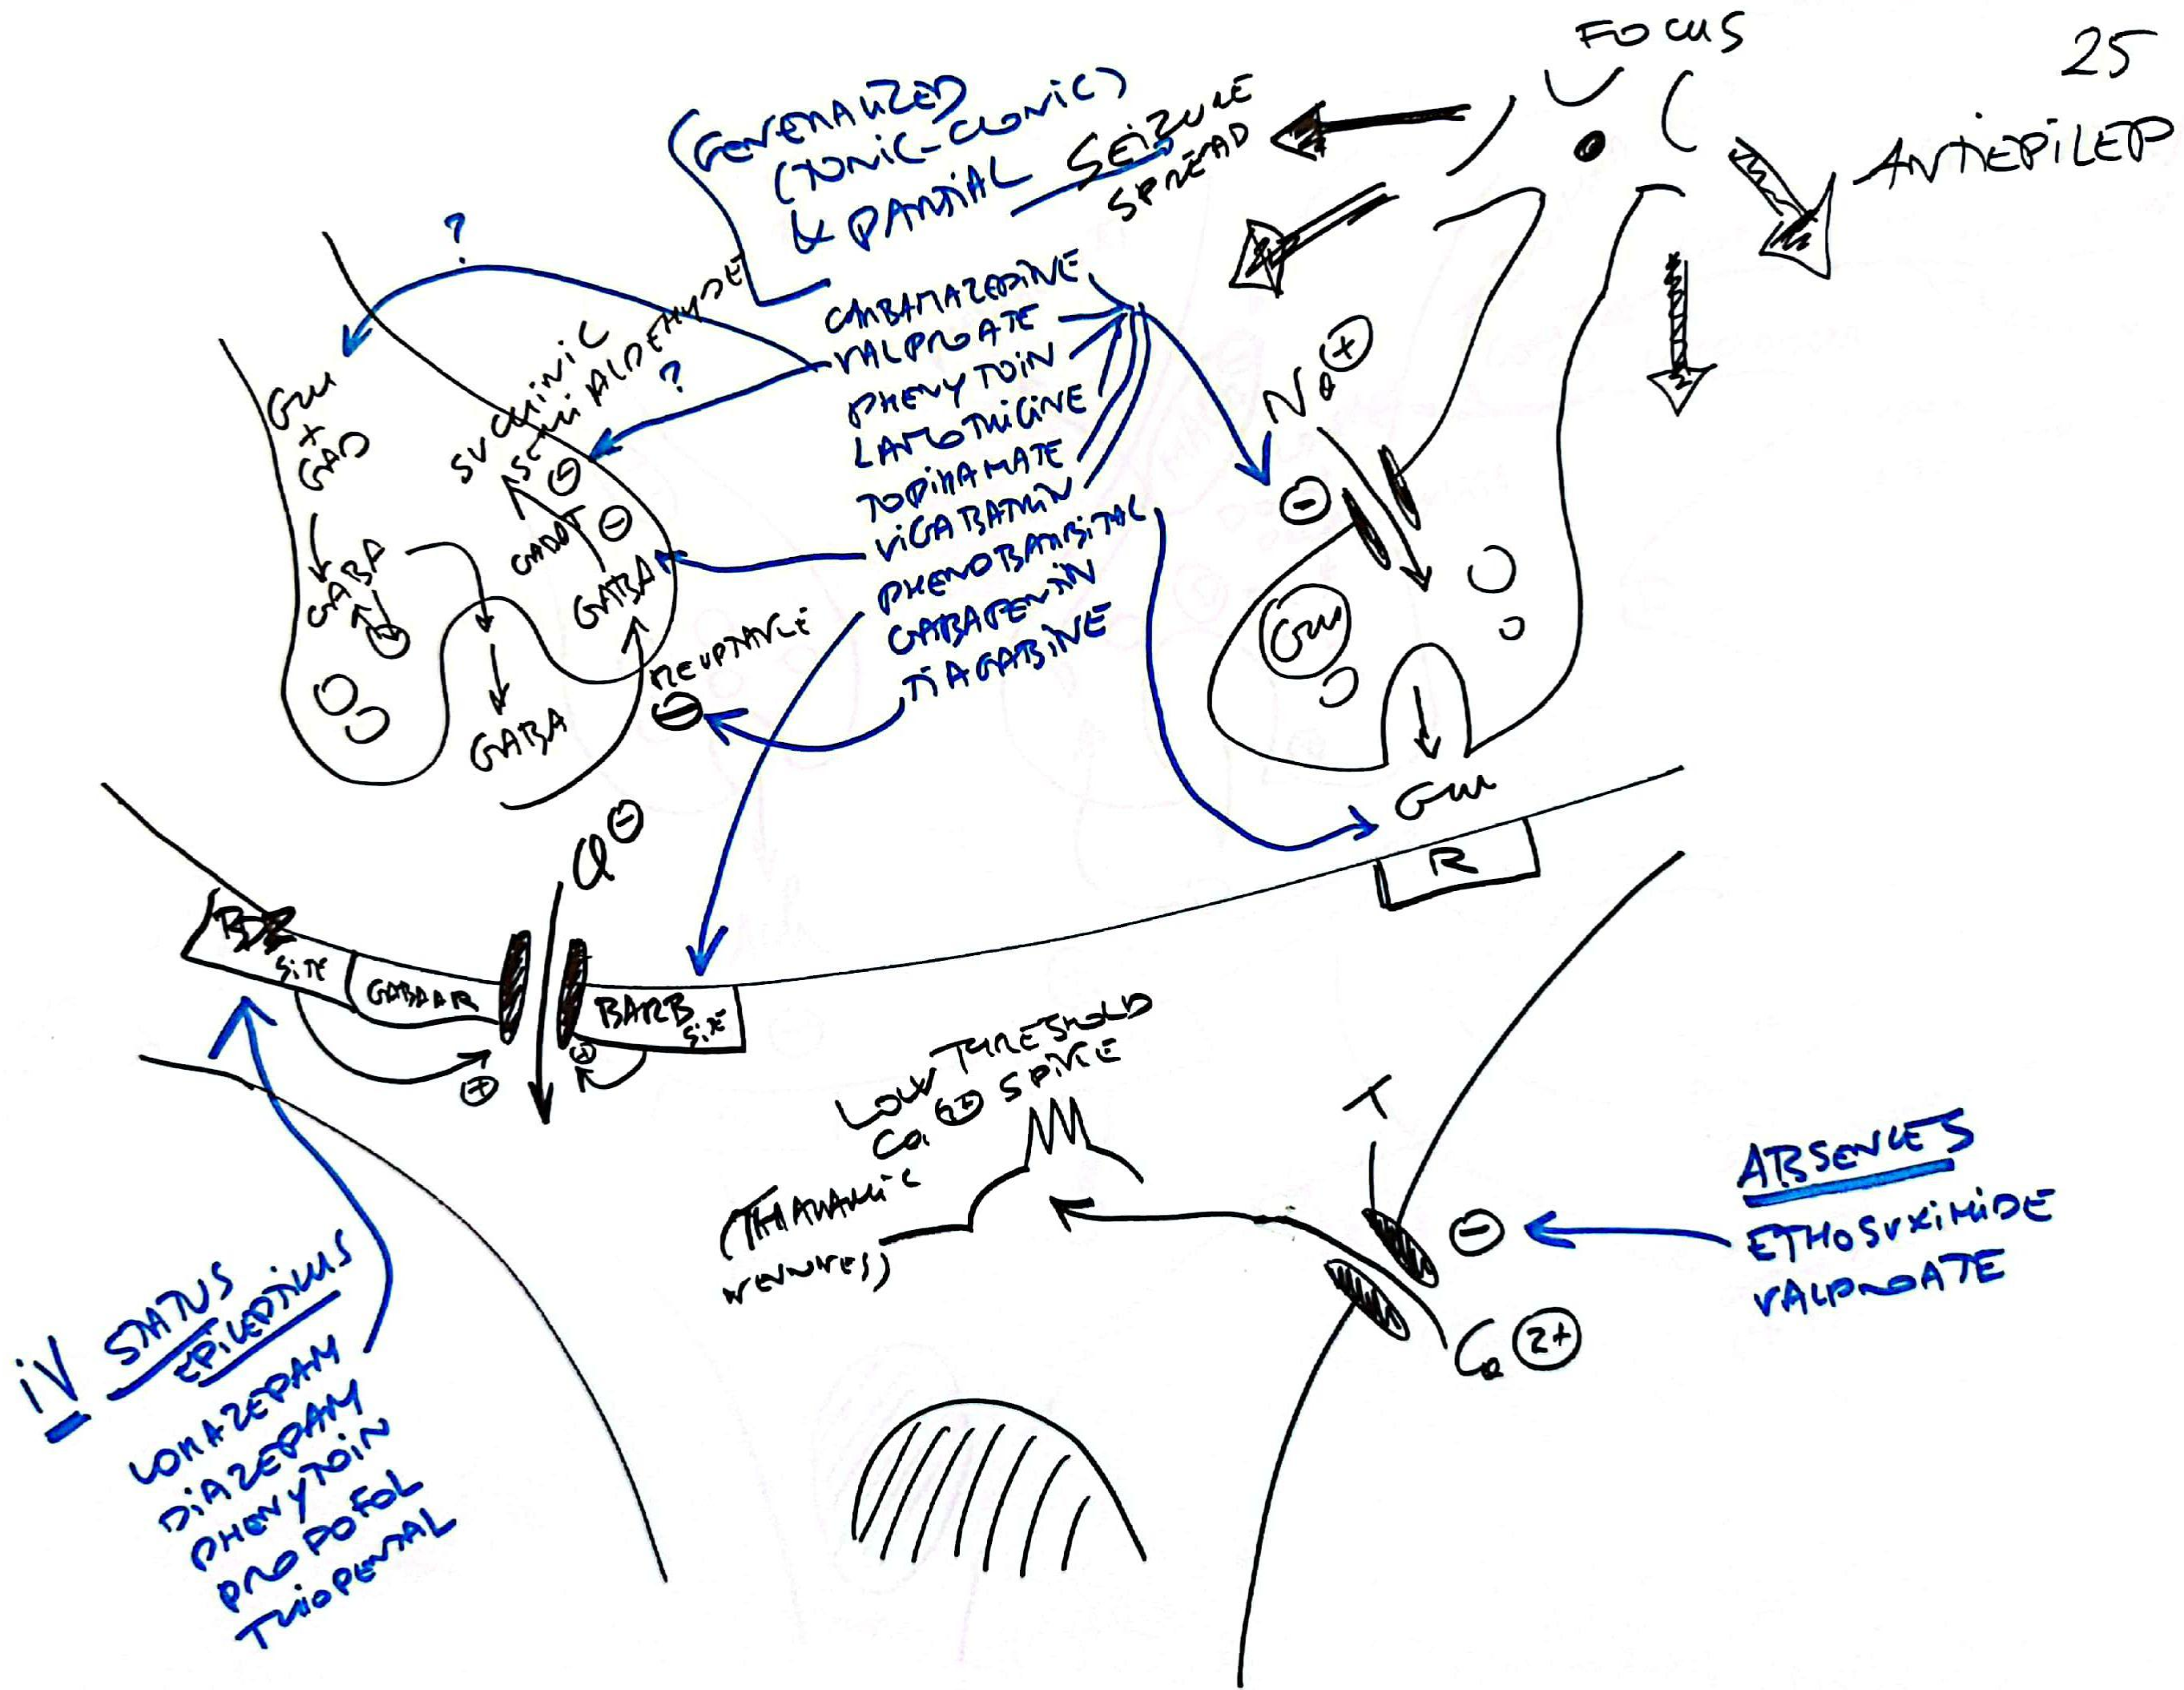 FOCUS
25
ANTIEPILEP
GENERALIZED
(TONIC-CLONIC)
& PARTIAL SEIZURE
SPREAD
?
?
CARBAMAZEPINE
VALPROATE
PHENYTOIN
LAMOTRIGINE
TOPIRAMATE
VIGABATRIN
PHENOBARBITAL
GABAPENTIN
TIAGABINE
Na +
-
Glu
Glu
R
Glu
+
GAD
GABA
SUCCINIC
SEMIALDEHYDE
-
GABAT -
GABA
GABA
REUPTAKE
-
Cl -
BDZ
SITE
GABAAR
BARB
SITE
+
+
LOW THRESHOLD
Ca 2+ SPIKE
(THALAMIC
NEURONES)
T
-
Ca 2+
ABSENCES
ETHOSUXIMIDE
VALPROATE
IV STATUS
EPILEPTICUS
LORAZEPAM
DIAZEPAM
PHENYTOIN
PROPOFOL
THIOPENTAL